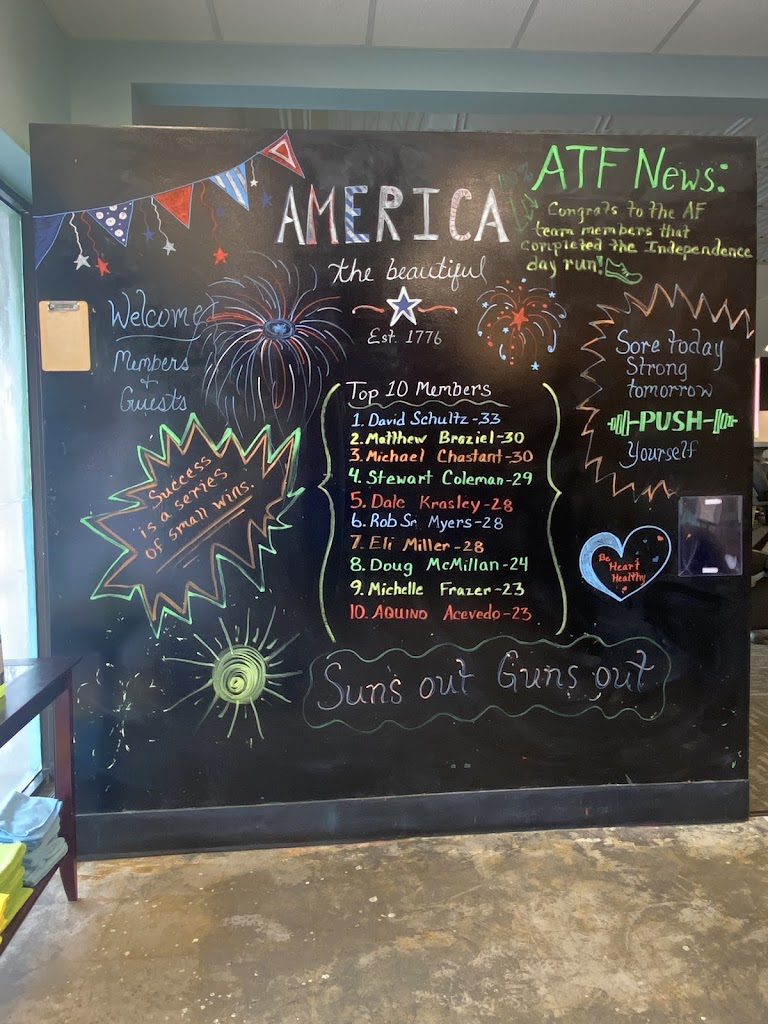 AMERICA
the beautiful
Est. 1776
ATF News:
Congrats to the AF
team members that
completed the Independence
day run!
Welcome
Members
&
Guests
Sore today
Strong
tomorrow
PUSH
Yourself
Success
is a series
of small wins.
Top 10 Members
1. David Schultz-33
2. Matthew Braziel-30
3. Michael Chastant-30
4. Stewart Coleman-29
5. Dale Krasley-28
6. Rob Sr. Myers-28
7. Eli Miller-28
8. Doug McMillan-24
9. Michelle Frazer-23
10. AQUINO Acevedo-23
Be
Heart
Healthy
Sun's out Guns out